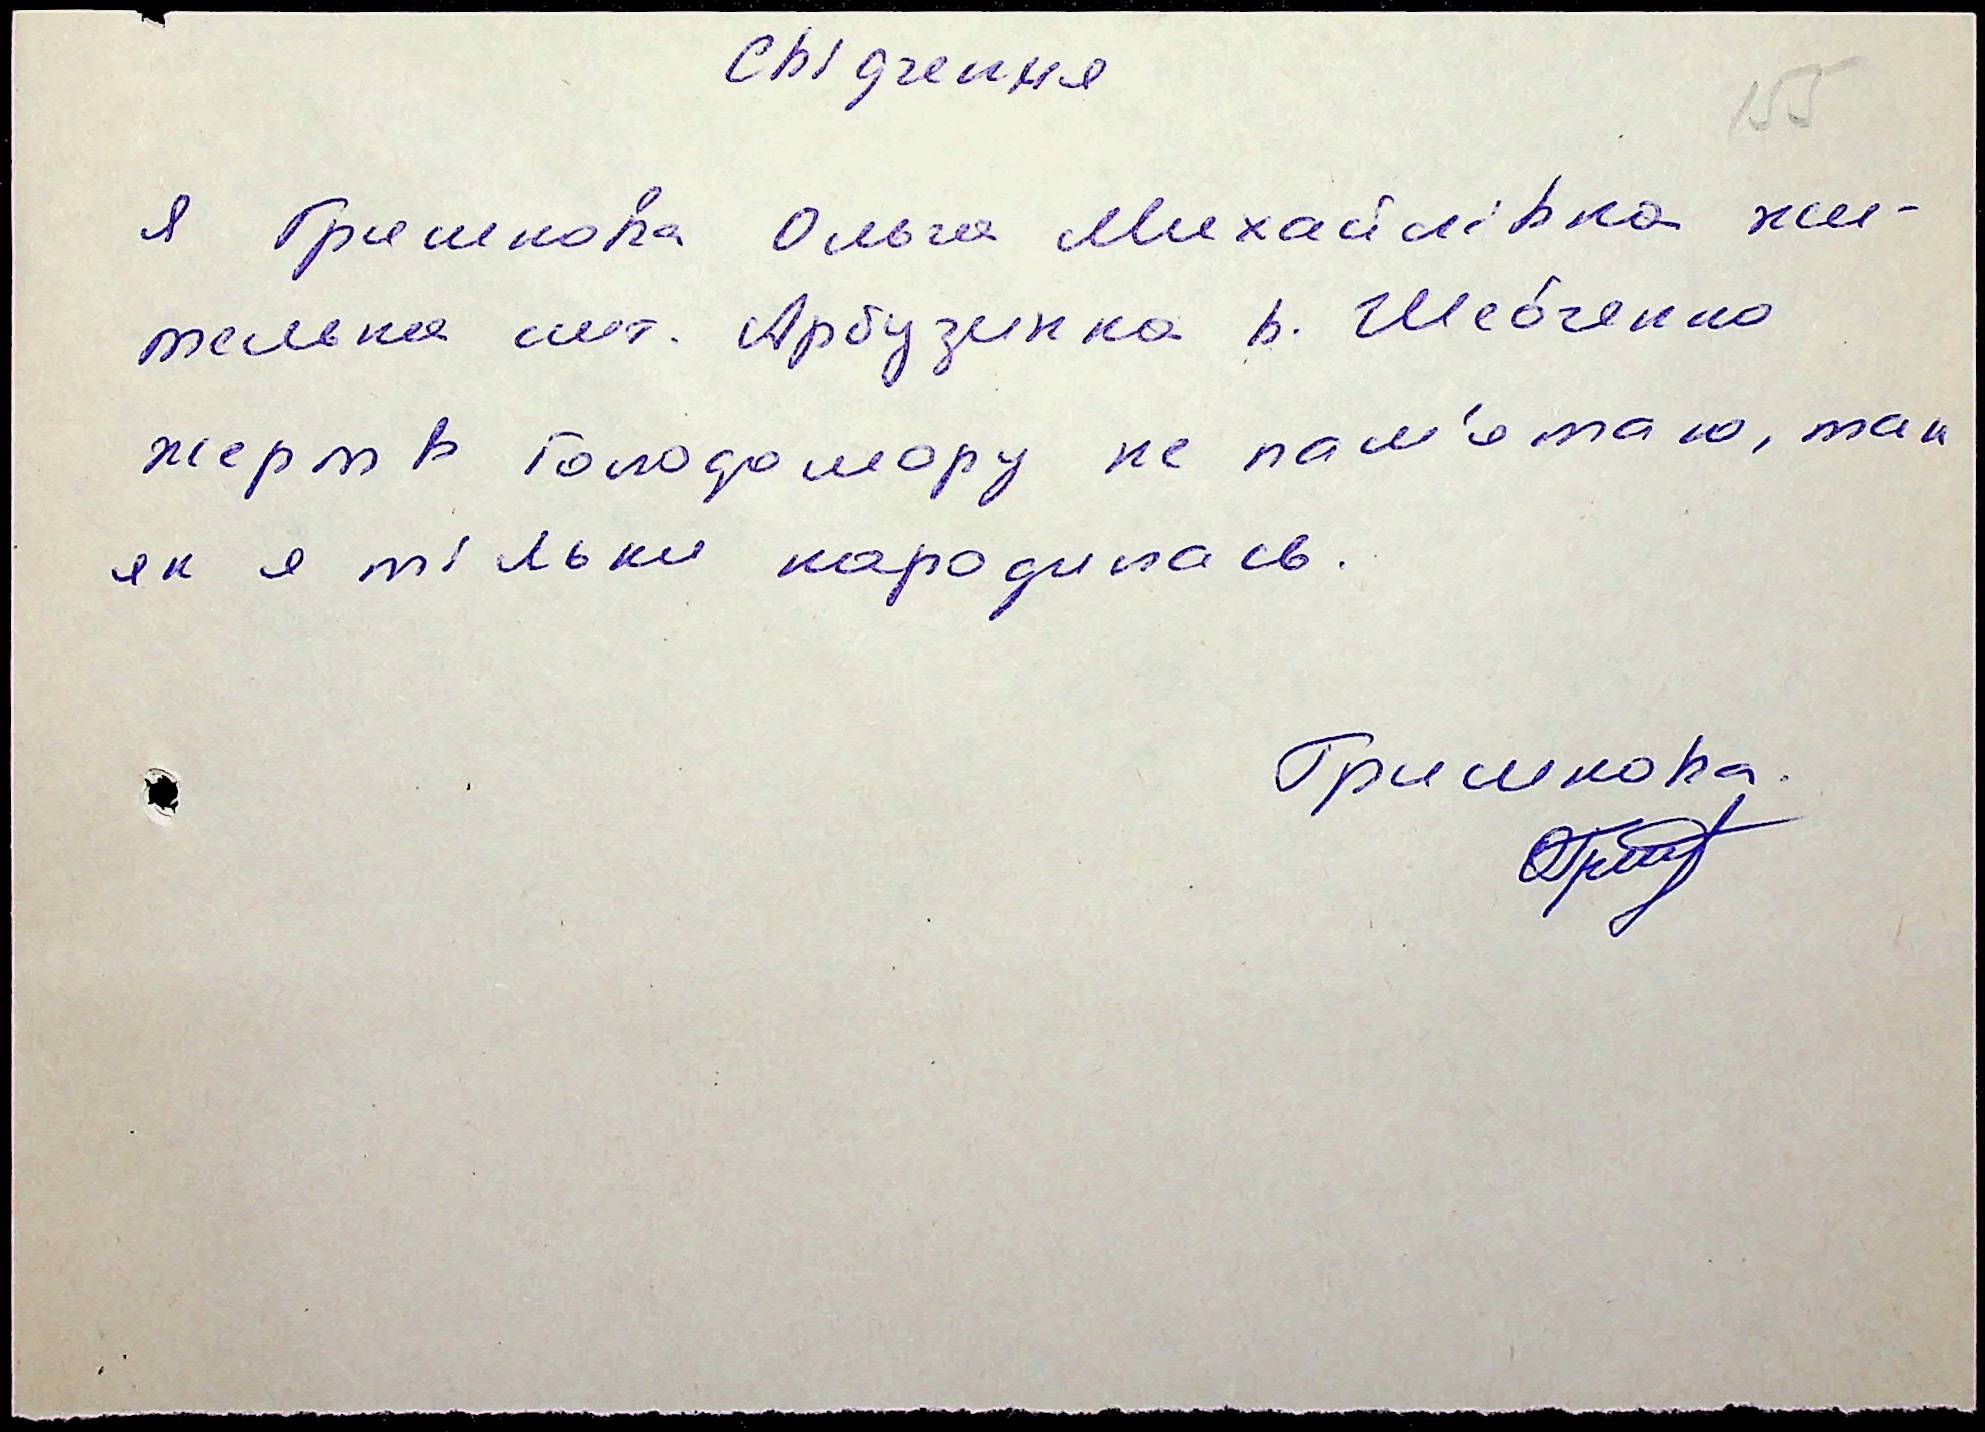 Свідчення
155
Я Гришкова Ольга Михайлівна жи-
телька смт. Арбузинка в. Шевченко
жертв Голодомору не пам'ятаю, так
як я тільки народилась.
Гришкова.